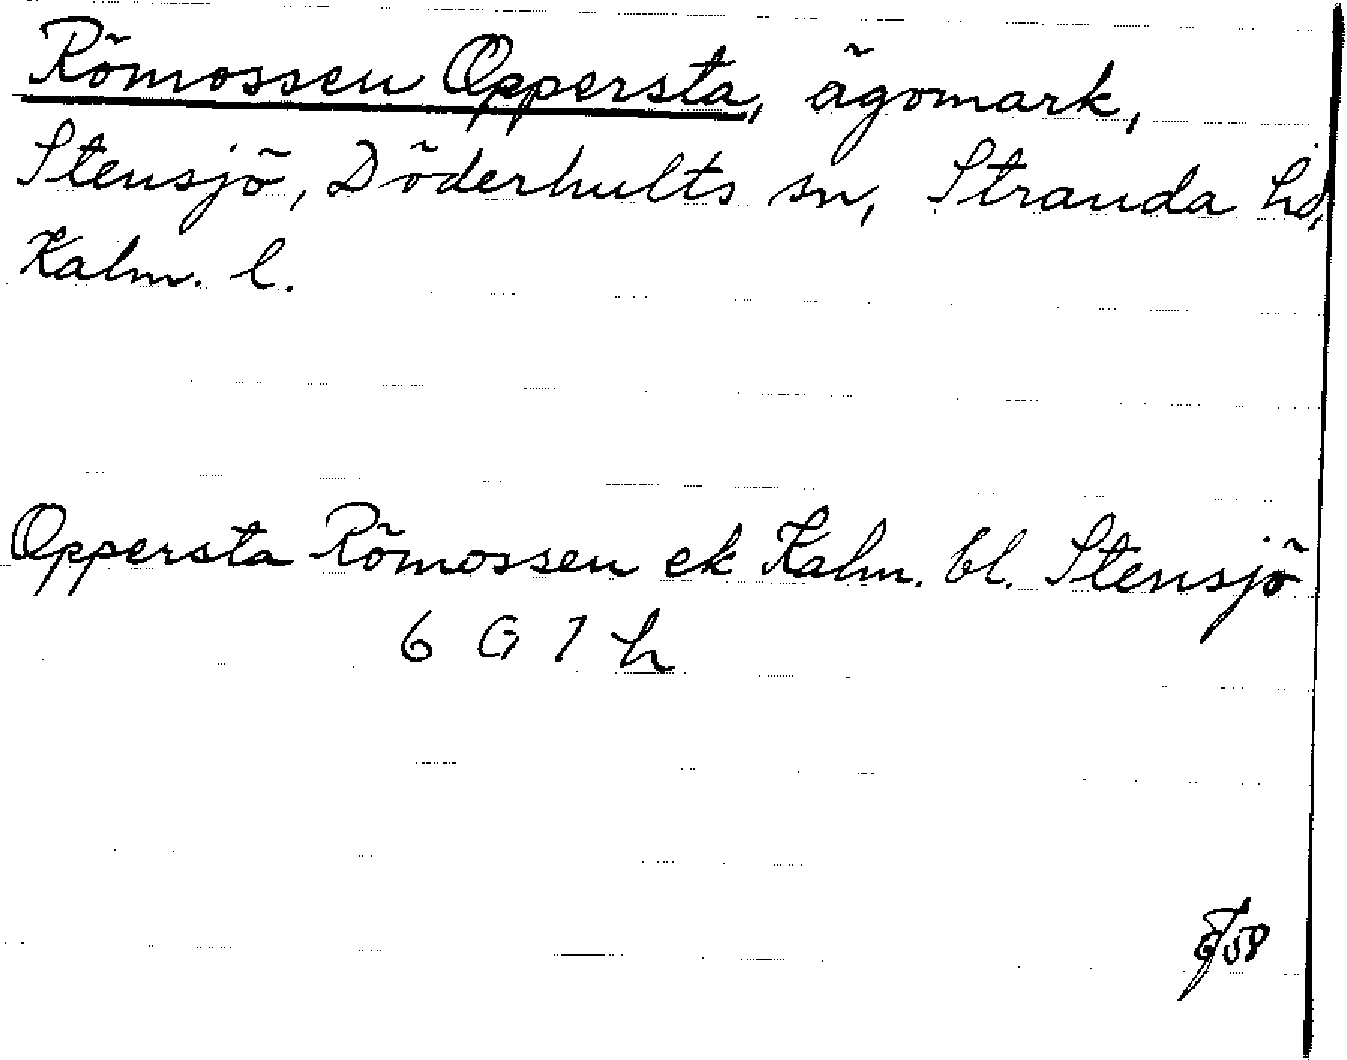 Römossen Oppersta, ägomark,
Stensjö, Döderhults sn, Stranda hd,
Kalm. l.
Oppersta Römossen ek Kalm. bl. Stensjö
6 G 7 h
58